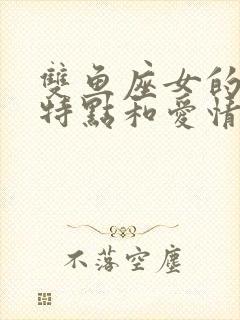 雙魚座女的
特點和愛情
不落空塵